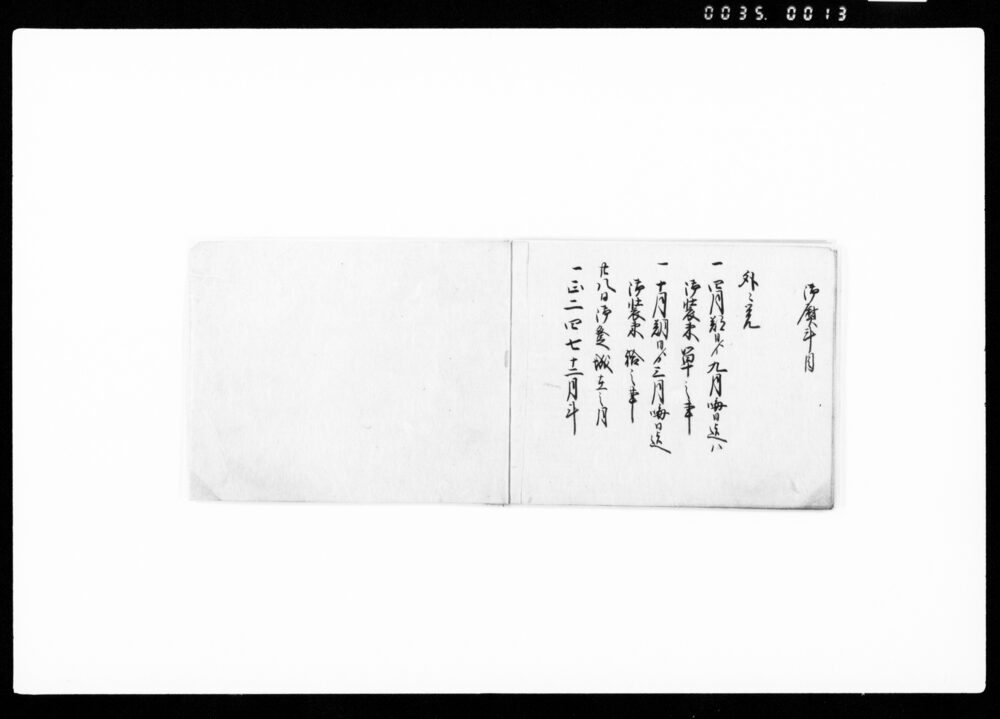 0035.0013
御熨斗目
外之覚
一四月朔日ゟ九月晦日迄ハ
御装束単之事
一十月朔日ゟ三月晦日迄
御装束袷之事
廿八日御登城在之月
一正二四七十二月斗